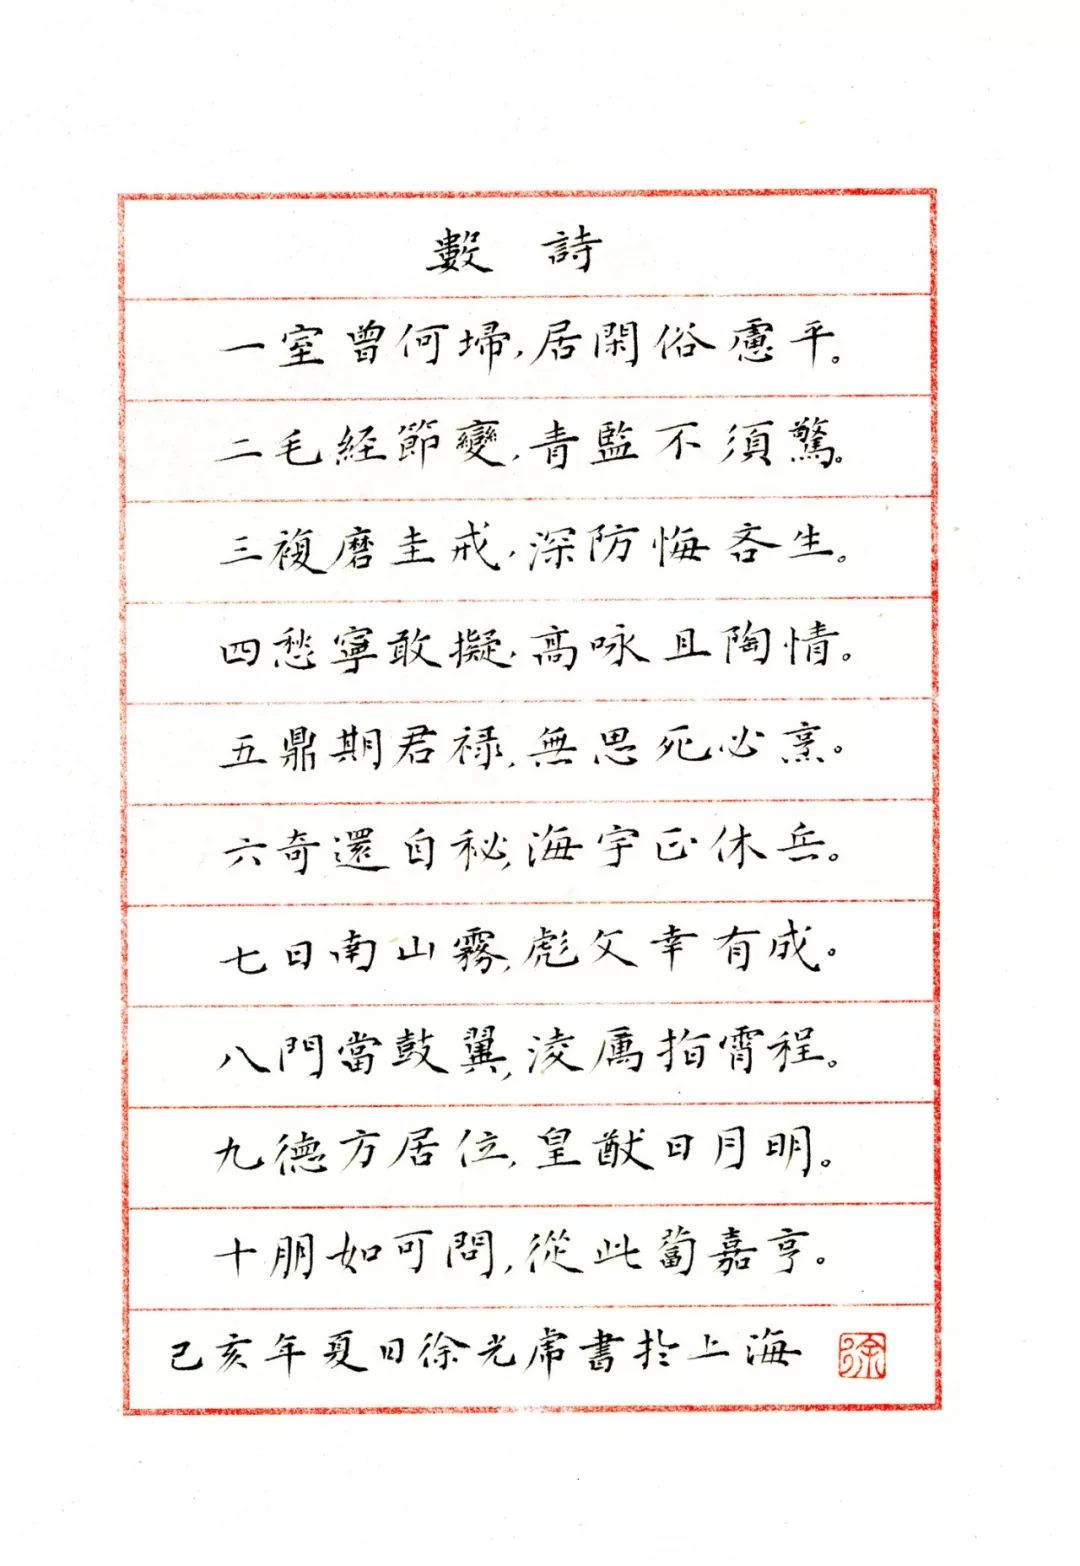 數詩
一室曾何埽，居閑俗慮平。
二毛経節變，青監不須驚。
三複磨圭戒，深防悔吝生。
四愁寧敢擬，高咏且陶情。
五鼎期君禄，無思死必烹。
六奇還自秘，海宇正休兵。
七日南山霧，彪文幸有成。
八門當鼓翼，淩厲指霄程。
九德方居位，皇猷日月明。
十朋如可問，從此蔔嘉亨。
己亥年夏日徐光席書扵上海
徐